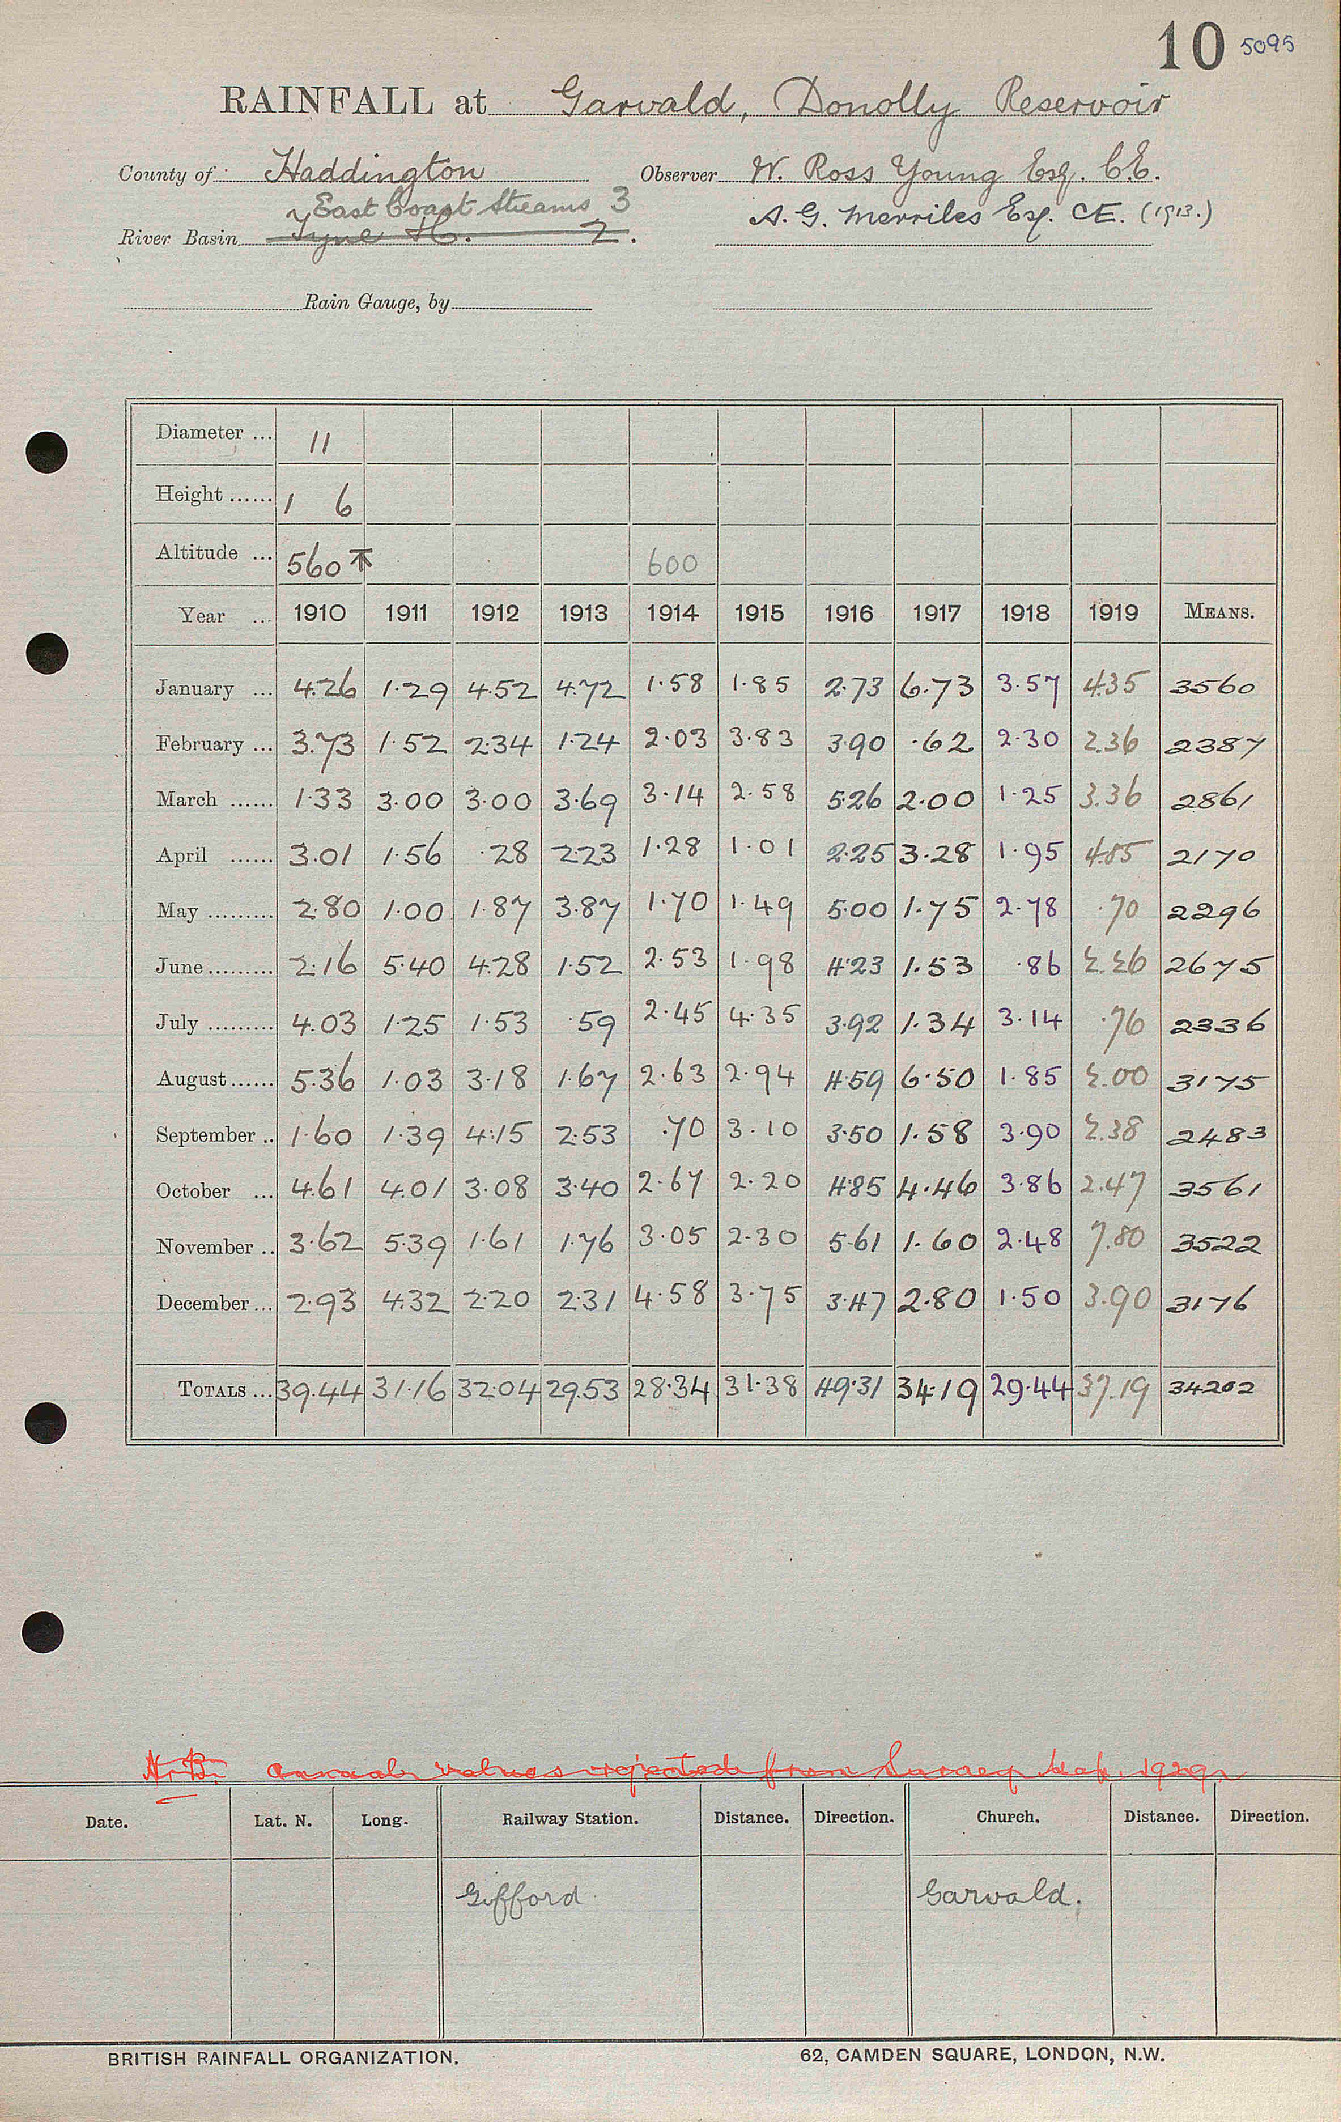 10 5095
RAINFALL at Garvald, Donolly Reservoir
County of Haddington Observer W. Ross Young Esq. C.E.
East Coast Streams 3 A. G. Merriles Esq. CE. (1913.)
River Basin Tyne &c. 2.
Rain Gauge, by
Diameter ... 11
Height ...... 1 6
Altitude ... 560 600
Year ... 1910 1911 1912 1913 1914 1915 1916 1917 1918 1919 MEANS.
January ... 4.26 1.29 4.52 4.72 1.58 1.85 2.73 6.73 3.57 4.35 3560
February ... 3.73 1.52 2.34 1.24 2.03 3.83 3.90 .62 2.30 2.36 2387
March ...... 1.33 3.00 3.00 3.69 3.14 2.58 5.26 2.00 1.25 3.36 2861
April ...... 3.01 1.56 .28 2.23 1.28 1.01 2.25 3.28 1.95 4.85 2170
May ......... 2.80 1.00 1.87 3.87 1.70 1.49 5.00 1.75 2.78 .70 2296
June ......... 2.16 5.40 4.28 1.52 2.53 1.98 4.23 1.53 .86 2.26 2675
July ......... 4.03 1.25 1.53 .59 2.45 4.35 3.92 1.34 3.14 .76 2336
August ...... 5.36 1.03 3.18 1.67 2.63 2.94 4.59 6.50 1.85 2.00 3175
September .. 1.60 1.39 4.15 2.53 .70 3.10 3.50 1.58 3.90 2.38 2483
October ... 4.61 4.01 3.08 3.40 2.67 2.20 4.85 4.46 3.86 2.47 3561
November .. 3.62 5.39 1.61 1.76 3.05 2.30 5.61 1.60 2.48 7.80 3522
December ... 2.93 4.32 2.20 2.31 4.58 3.75 3.47 2.80 1.50 3.90 3176
TOTALS ... 39.44 31.16 32.04 29.53 28.34 31.38 49.31 34.19 29.44 37.19 34202
N.B. annual values rejected from Survey 1929
Date. Lat. N. Long. Railway Station. Distance. Direction. Church. Distance. Direction.
Gifford. Garvald.
BRITISH RAINFALL ORGANIZATION. 62, CAMDEN SQUARE, LONDON, N.W.